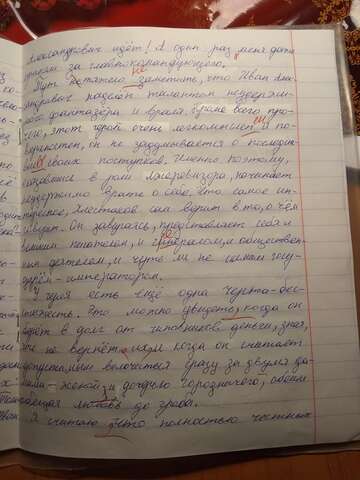 Александрович идёт! А один раз меня даже
приняли за главнокомандующего.
Тут не тяжело заметить, что Иван Алек-
сандрович наделён талантом неудержи-
мого фантазёра и врача. Кроме всего про-
чего, этот герой очень легкомыслен и по-
верхностен, он не задумывается о последст-
виях своих поступков. Именно поэтому,
оказавшись в роли лжеревизора, начинает
неудержимо врать о себе, что самое ин-
тересное, Хлестаков сам верит в то, о чём
говорит. Он завуаясь, представляет себя и
великим писателем, и генералом, и обществен-
ным деятелем, и чуть ли не самим госу-
дарём - императором.
У героя есть ещё одна черта - бес-
честность. Это можно увидеть, когда он
берёт в долг от чиновников деньги, зная,
что не вернёт их, и когда он считает
допустимым волочиться сразу за двумя да-
мами - женой и дочерью городничего, обеим
обещая любовь до гроба.
Я считаю, что полностью честных